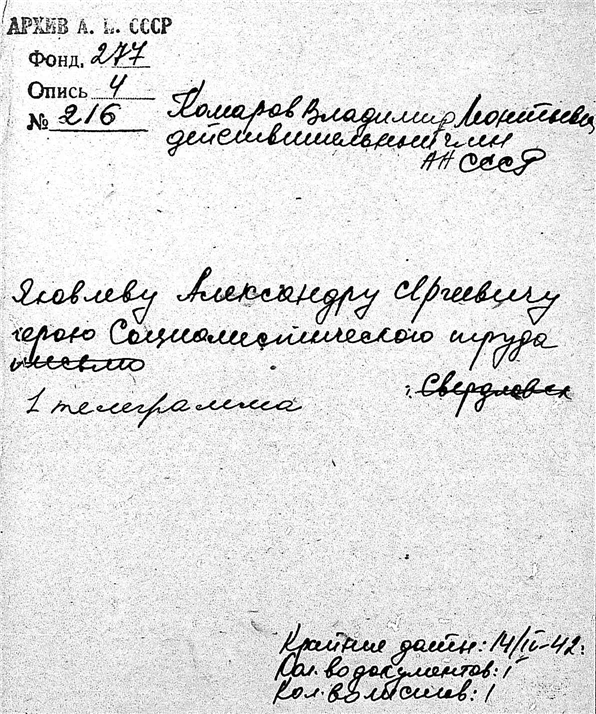 АРХИВ А. Н. СССР
Фонд. 277
Опись 4
№ 216
Комаров Владимир Леонтьевич
действительный член
АН СССР
Яковлеву Александру Сергеевичу
герою Социалистического труда
письмо
г. Свердловск
1 телеграмма
Крайние даты: 14/IV-42г.
Кол. во документов: 1
Кол. во листов: 1